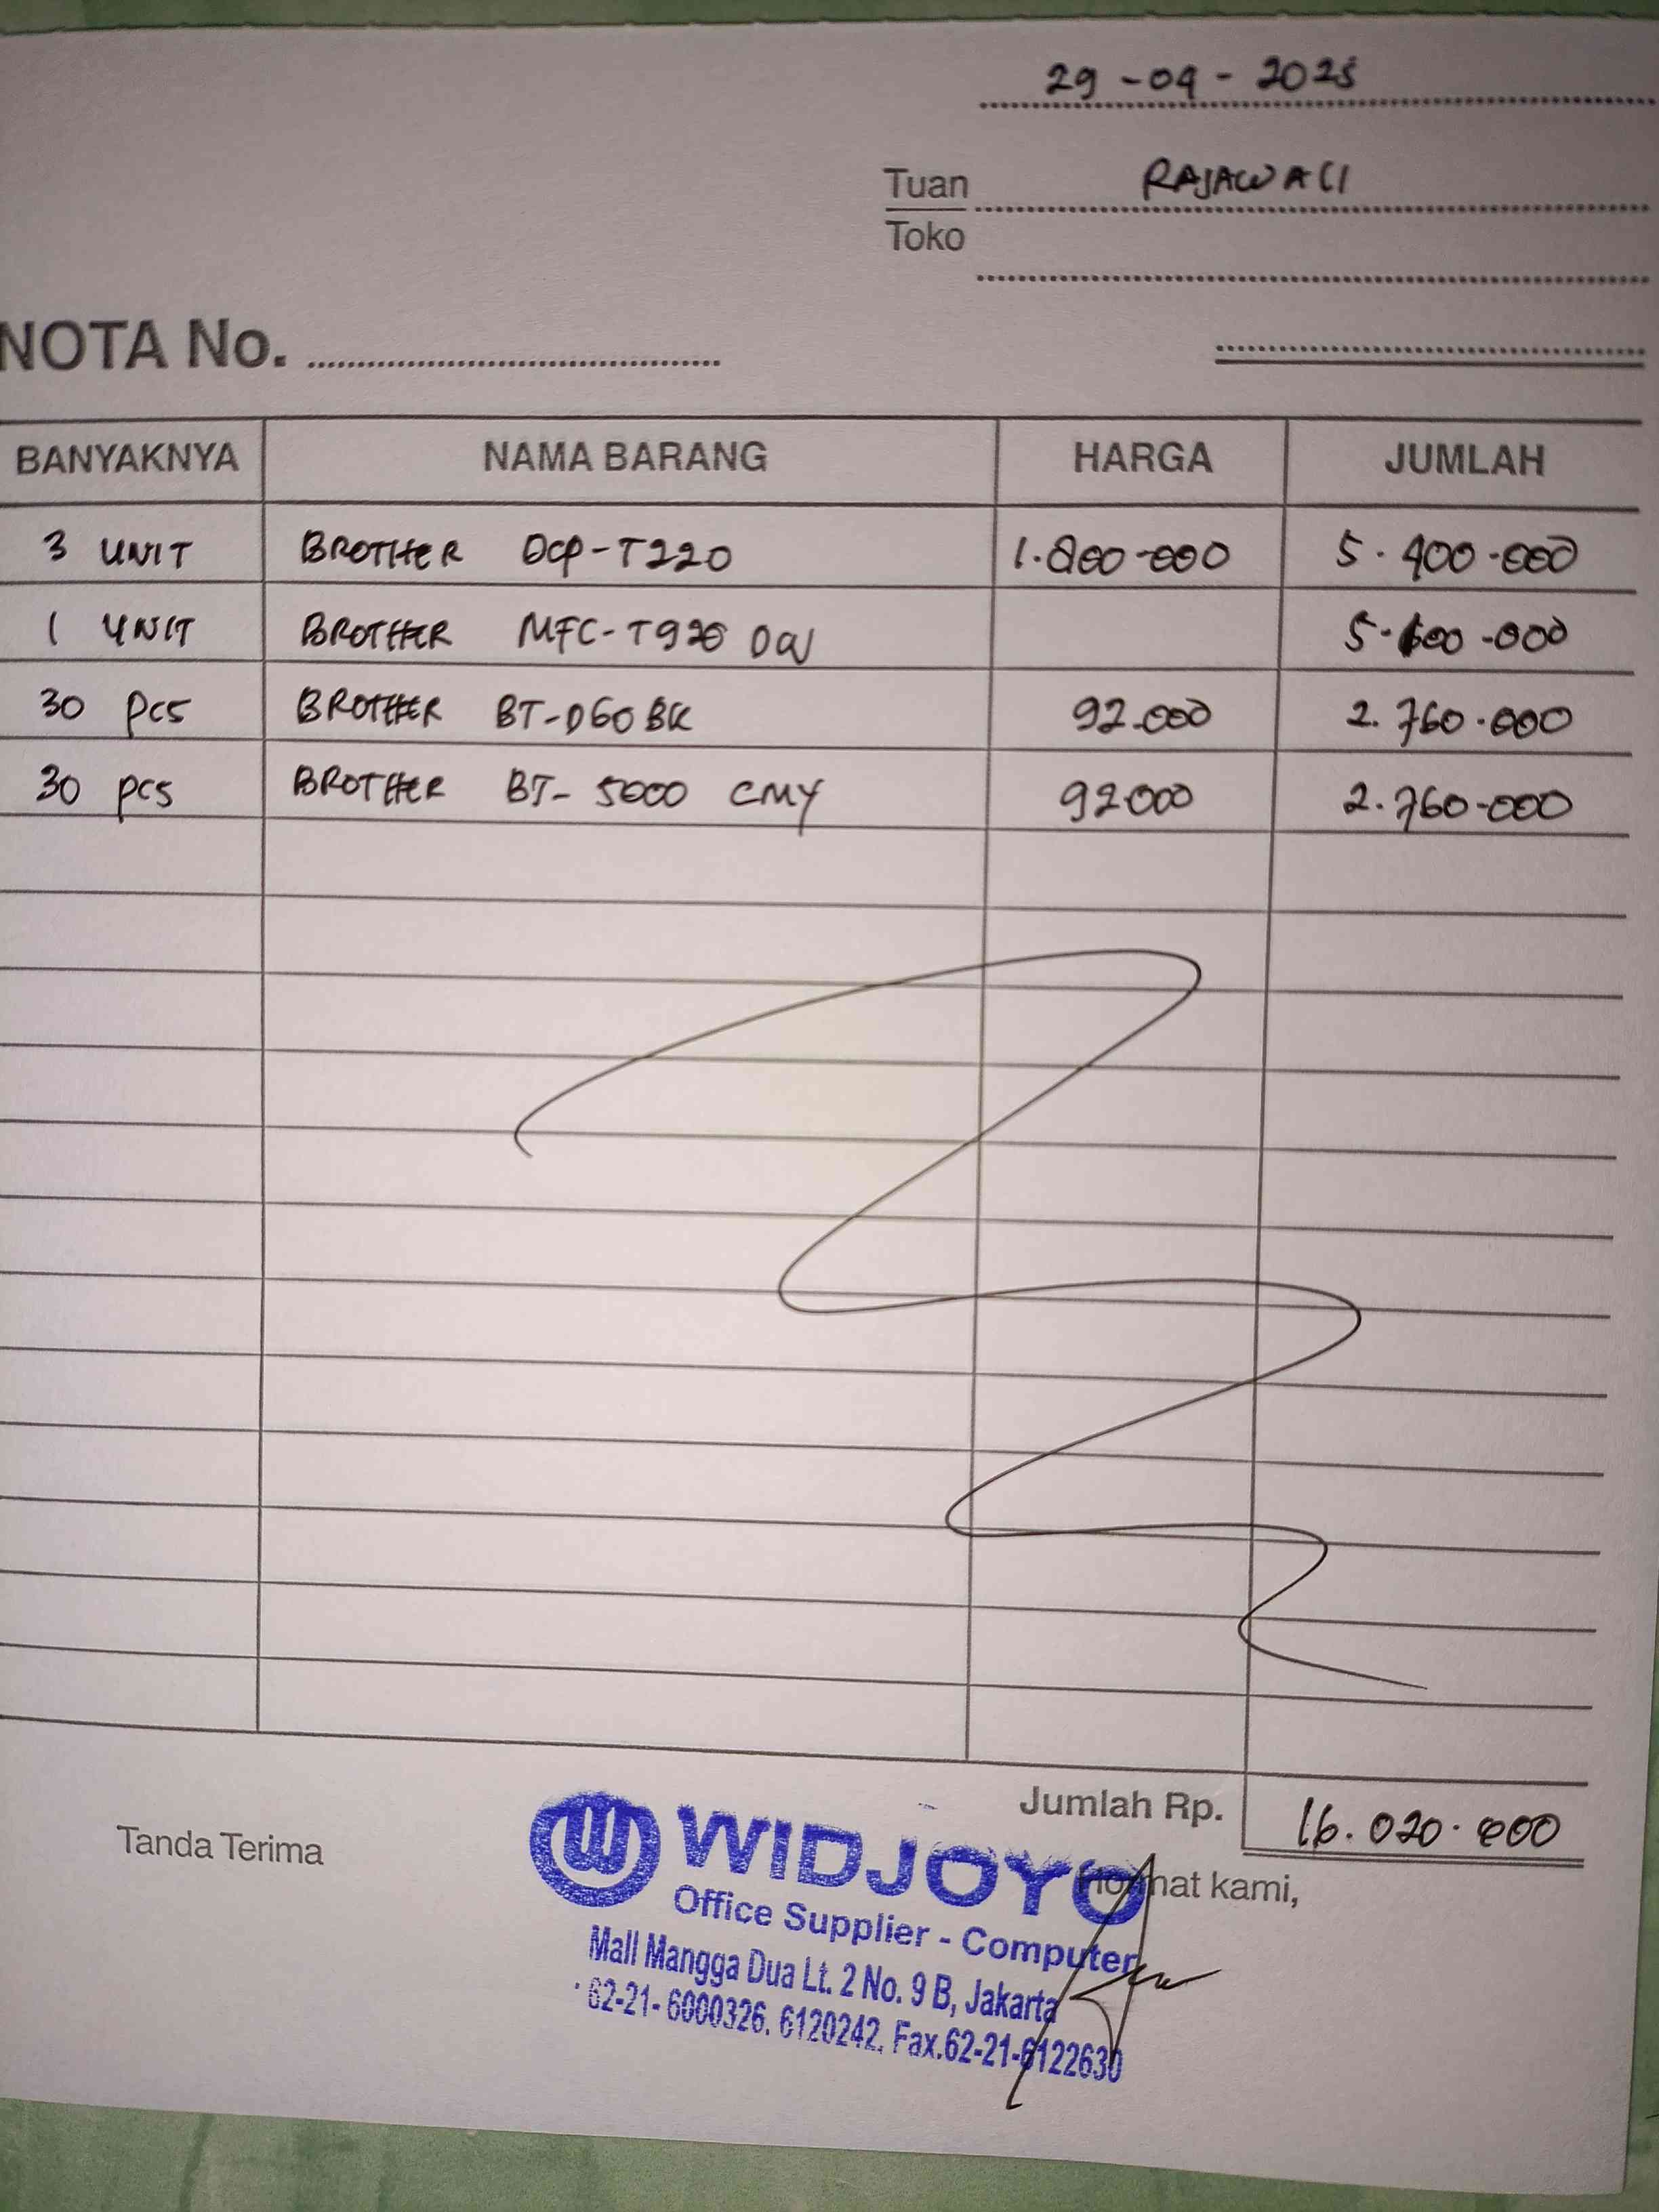 29-04-2025
Tuan RAJAWALI
Toko
NOTA No.
BANYAKNYA NAMA BARANG HARGA JUMLAH
3 UNIT BROTHER DCP-T220 1.800.000 5.400.000
1 UNIT BROTHER MFC-T920 DW 5.100.000
30 pcs BROTHER BT-D60BK 92.000 2.760.000
30 pcs BROTHER BT-5000 CMY 92000 2.760.000
Jumlah Rp. 16.020.000
Tanda Terima
Hormat kami,
WIDJOYO
Office Supplier - Computer
Mall Mangga Dua Lt. 2 No. 9 B, Jakarta
62-21-6000326. 6120242. Fax.62-21-6122630